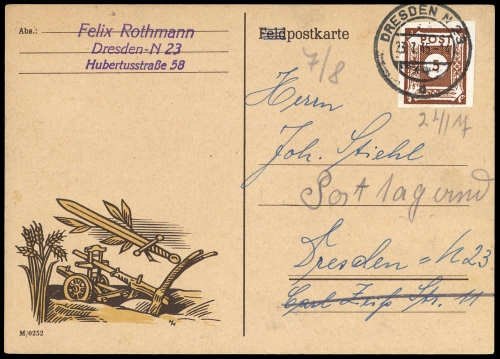 Abs.: Felix Rothmann
Dresden-N 23
Hubertusstraße 58
Feldpostkarte
DRESDEN N 23
POST
7/8
Herrn
Joh. Stiehl
Postlagernd
Dresden=N23
Carl Zeiß Str. 11
M/0252